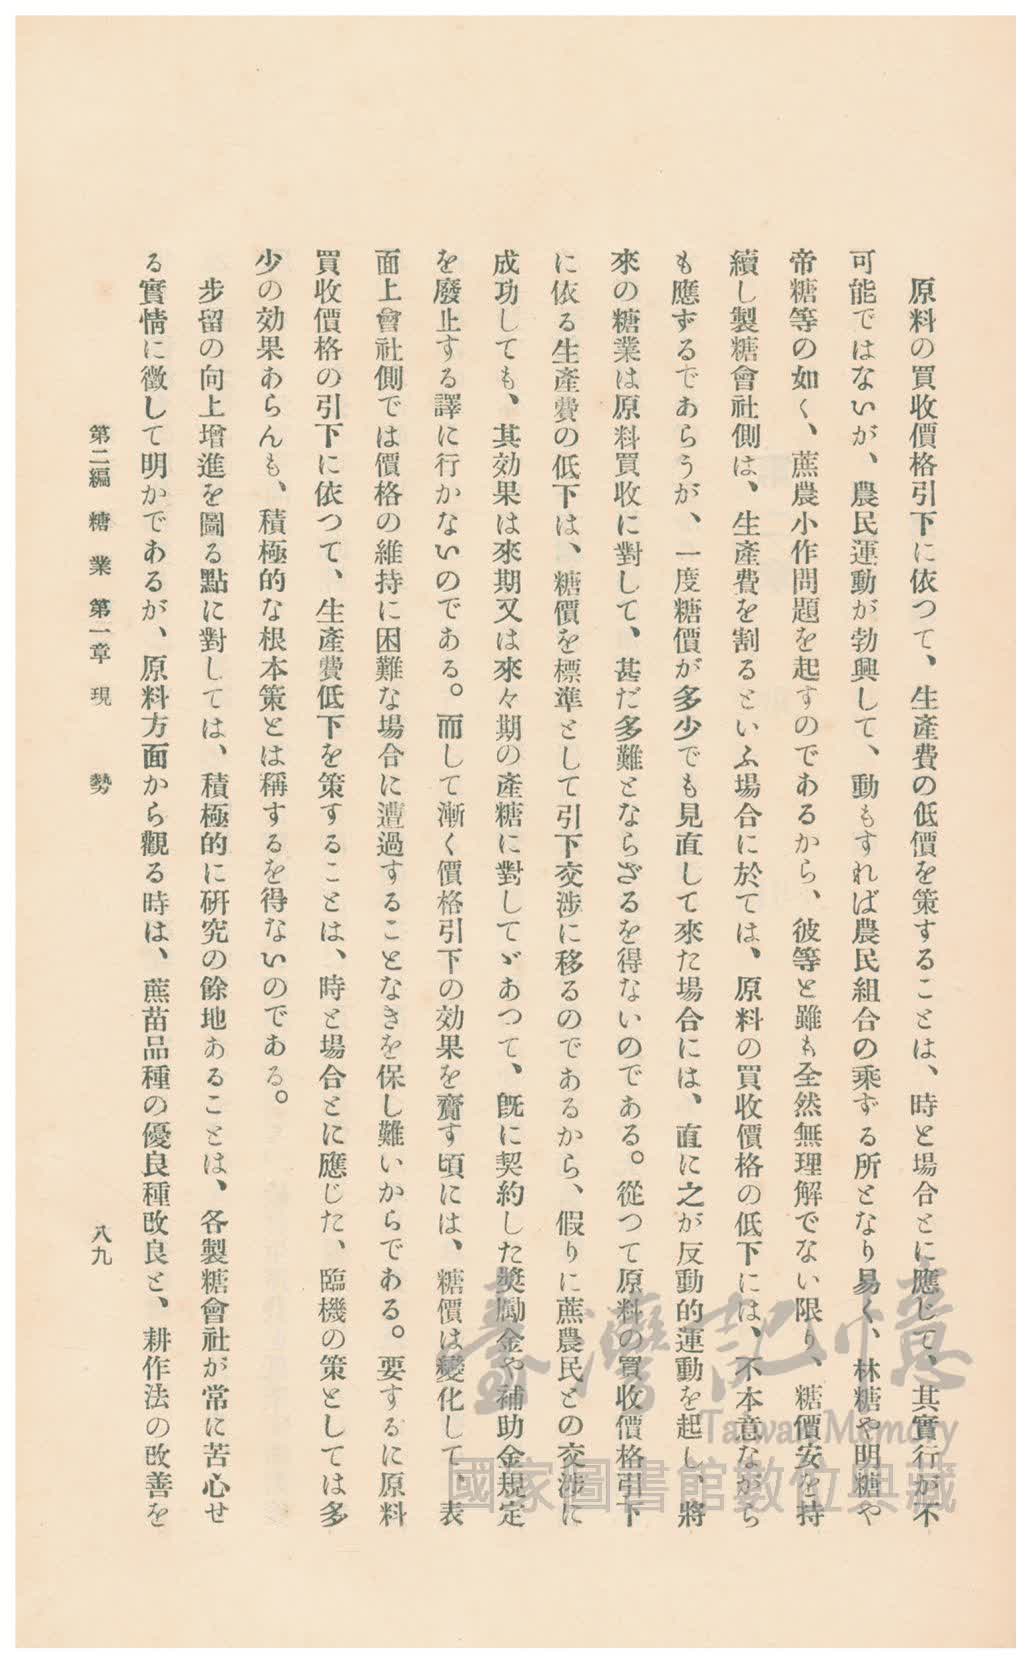 原料の買收價格引下に依つて、生產費の低價を策することは、時と場合とに應じて、其實行が不
可能ではないが、農民運動が勃興して、動もすれば農民組合の乘ずる所となり易く、林糖や明糖や
帝糖等の如く、蔗農小作問題を起すのであるから、彼等と雖も全然無理解でない限り、糖價安を持
續し製糖會社側は、生產費を割るといふ場合に於ては、原料の買收價格の低下には、不本意ながら
も應ずるであらうが、一度糖價が多少でも見直して來た場合には、直に之が反動的運動を起し、將
來の糖業は原料買收に對して、甚だ多難とならざるを得ないのである。從つて原料の買收價格引下
に依る生產費の低下は、糖價を標準として引下交涉に移るのであるから、假りに蔗農民との交涉に
成功しても、其効果は來期又は來々期の產糖に對してゞあつて、旣に契約した奬勵金や補助金規定
を廢止する譯に行かないのである。而して漸く價格引下の効果を齎す頃には、糖價は變化して、表
面上會社側では價格の維持に困難な場合に遭過することなきを保し難いからである。要するに原料
買收價格の引下に依つて、生產費低下を策することは、時と場合とに應じた、臨機の策としては多
少の効果あらんも、積極的な根本策とは稱するを得ないのである。
步留の向上增進を圖る點に對しては、積極的に硏究の餘地あることは、各製糖會社が常に苦心せ
る實情に徵して明かであるが、原料方面から觀る時は、蔗苗品種の優良種改良と、耕作法の改善を
第二編 糖業 第一章 現勢 八九
臺灣記憶
Taiwan Memory
國家圖書館數位典藏